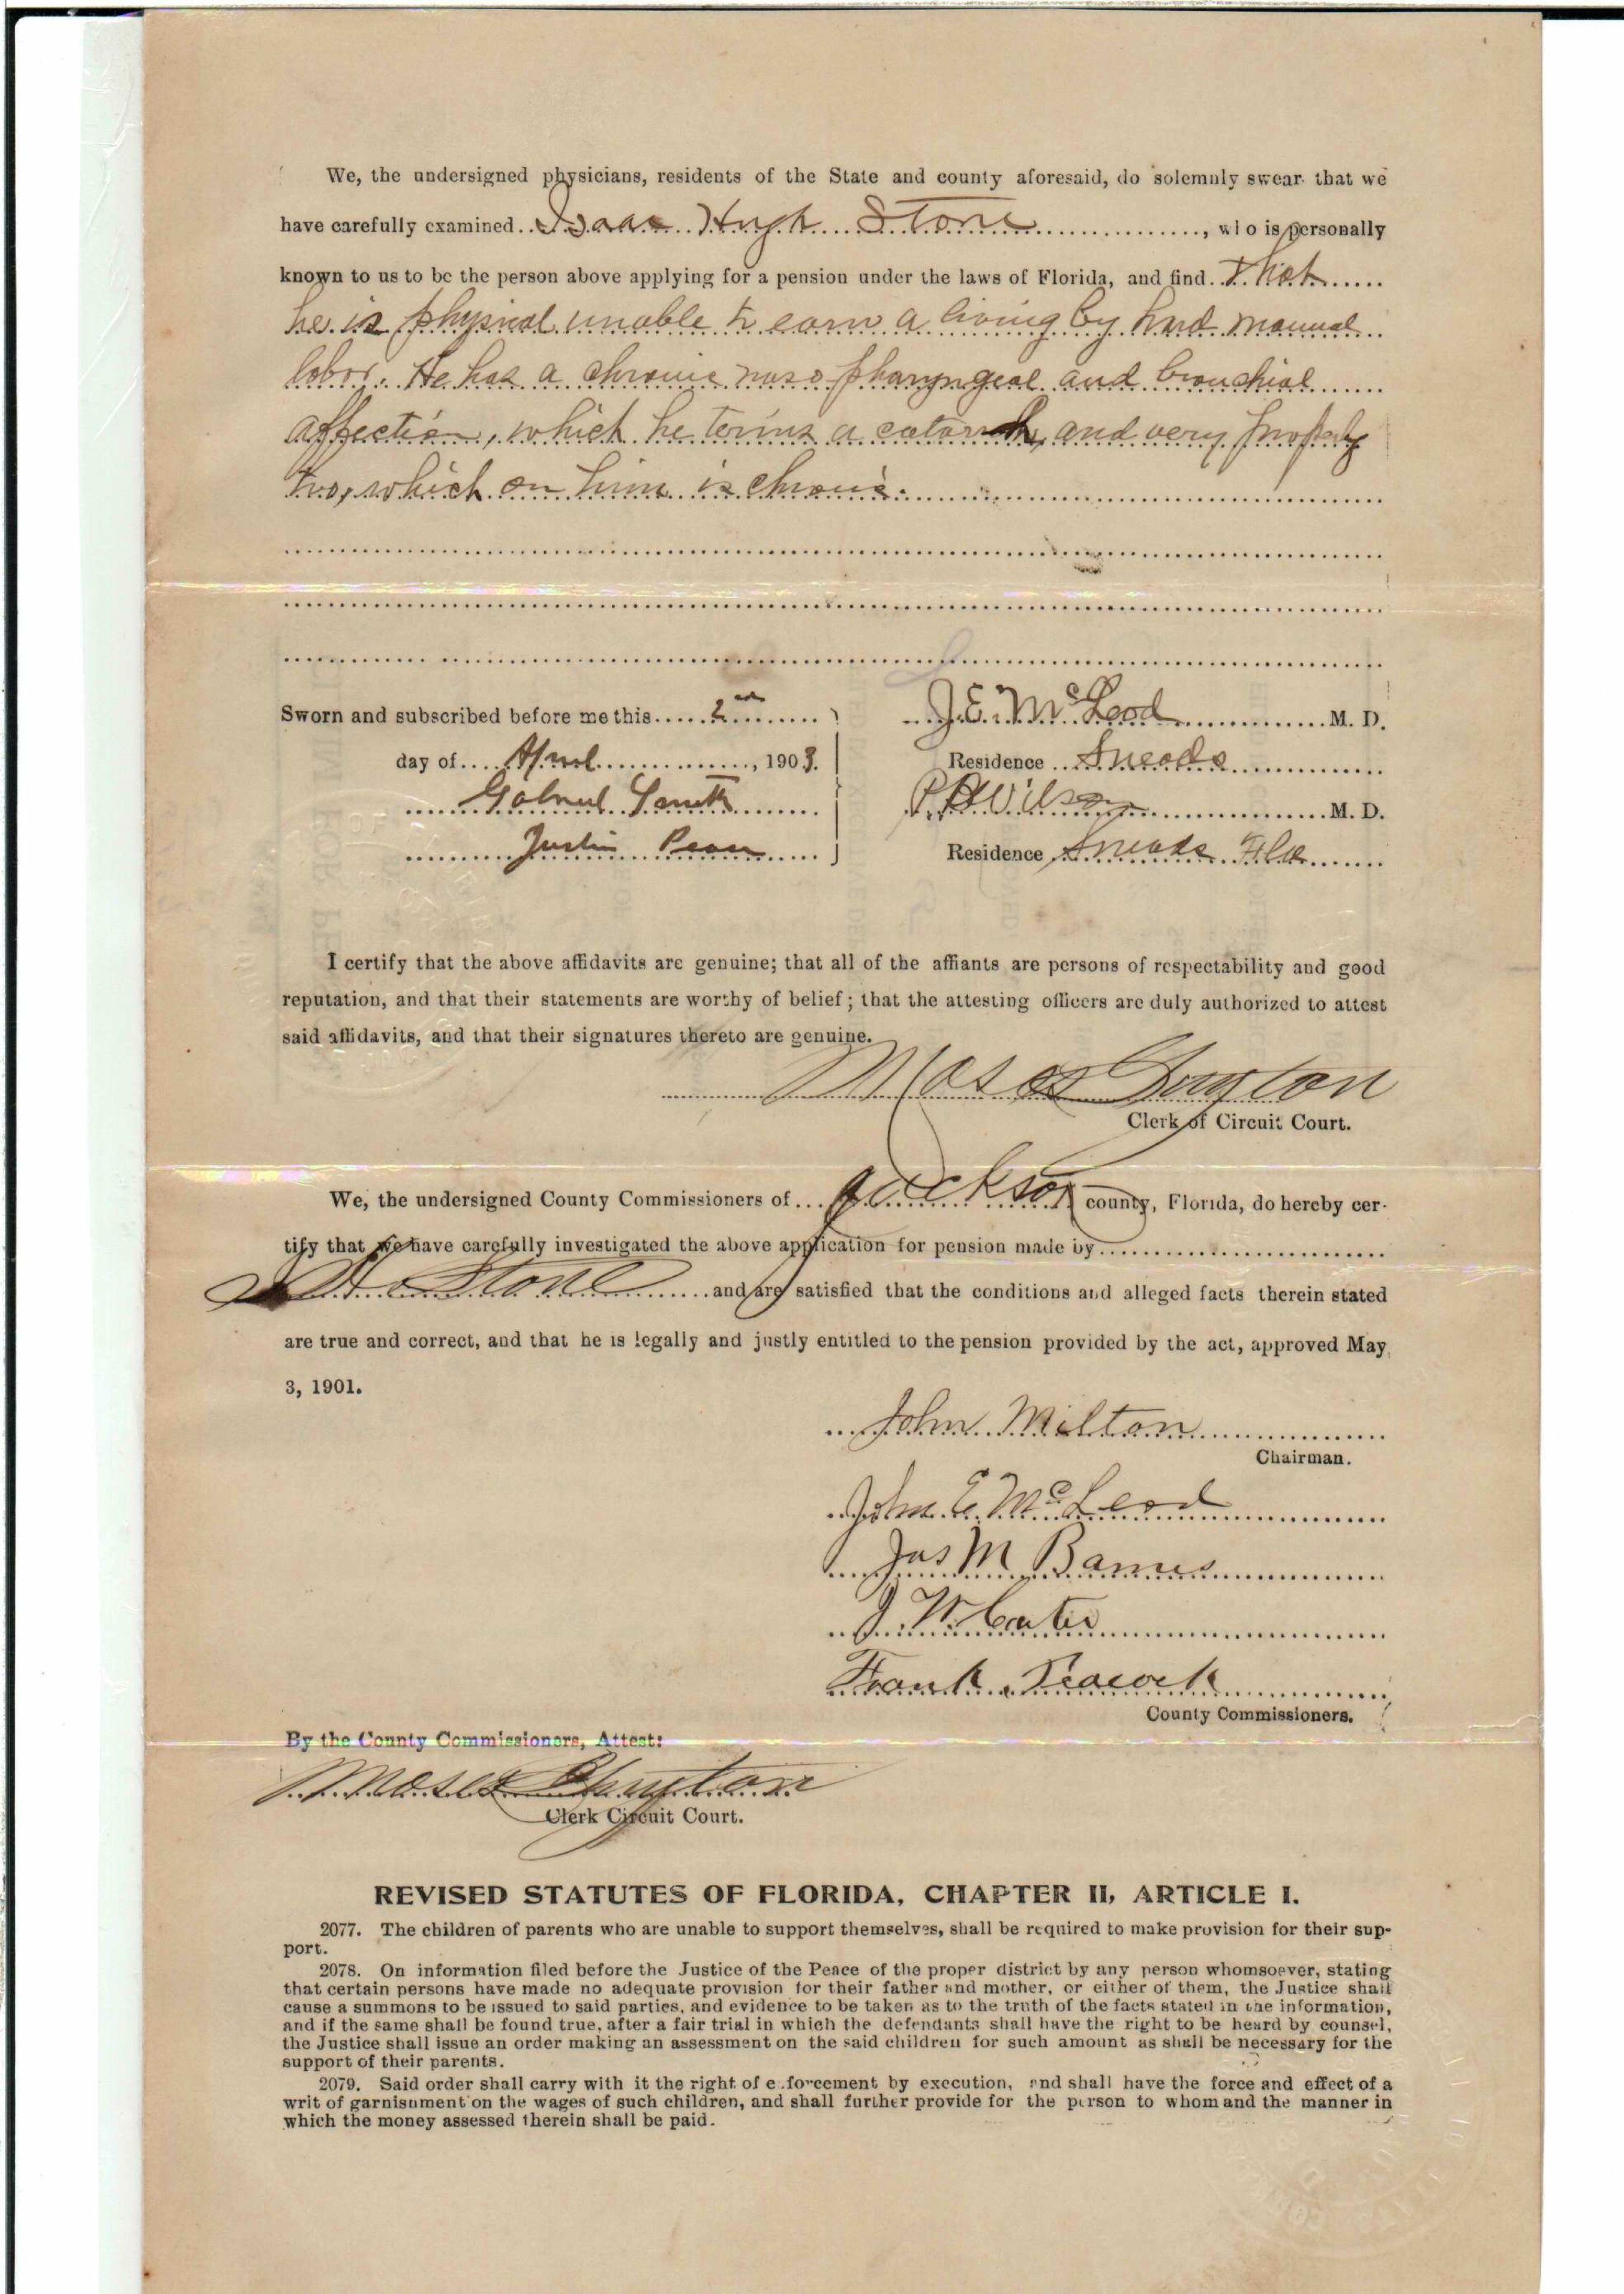 We, the undersigned physicians, residents of the State and county aforesaid, do solemnly swear that we
have carefully examined Isaac Hugh Stone, who is personally
known to us to be the person above applying for a pension under the laws of Florida, and find that
he is physical unable to earn a living by hard manual
labor. He has a chronic naso pharyngeal and bronchial
affection, which he terms a catarrh, and very properly
too, which on him is chronic.
Sworn and subscribed before me this 2nd
day of April, 1903.
Gabriel Smith
Justice Peace
J. E. McLeod M. D.
Residence Sneads
Wilson M. D.
Residence Sneads Fla
I certify that the above affidavits are genuine; that all of the affiants are persons of respectability and good
reputation, and that their statements are worthy of belief; that the attesting officers are duly authorized to attest
said affidavits, and that their signatures thereto are genuine.
Moses Guyton
Clerk of Circuit Court.
We, the undersigned County Commissioners of Jackson county, Florida, do hereby cer-
tify that we have carefully investigated the above application for pension made by
H Stone and are satisfied that the conditions and alleged facts therein stated
are true and correct, and that he is legally and justly entitled to the pension provided by the act, approved May
3, 1901.
John Milton
Chairman.
John E. McLeod
Jas M Barnes
J. W. Carter
Frank Peacock
County Commissioners.
By the County Commissioners, Attest:
Moses Guyton
Clerk Circuit Court.
REVISED STATUTES OF FLORIDA, CHAPTER II, ARTICLE I.
2077. The children of parents who are unable to support themselves, shall be required to make provision for their sup-
port.
2078. On information filed before the Justice of the Peace of the proper district by any person whomsoever, stating
that certain persons have made no adequate provision for their father and mother, or either of them, the Justice shall
cause a summons to be issued to said parties, and evidence to be taken as to the truth of the facts stated in the information,
and if the same shall be found true, after a fair trial in which the defendants shall have the right to be heard by counsel,
the Justice shall issue an order making an assessment on the said children for such amount as shall be necessary for the
support of their parents.
2079. Said order shall carry with it the right of enforcement by execution, and shall have the force and effect of a
writ of garnishment on the wages of such children, and shall further provide for the person to whom and the manner in
which the money assessed therein shall be paid.